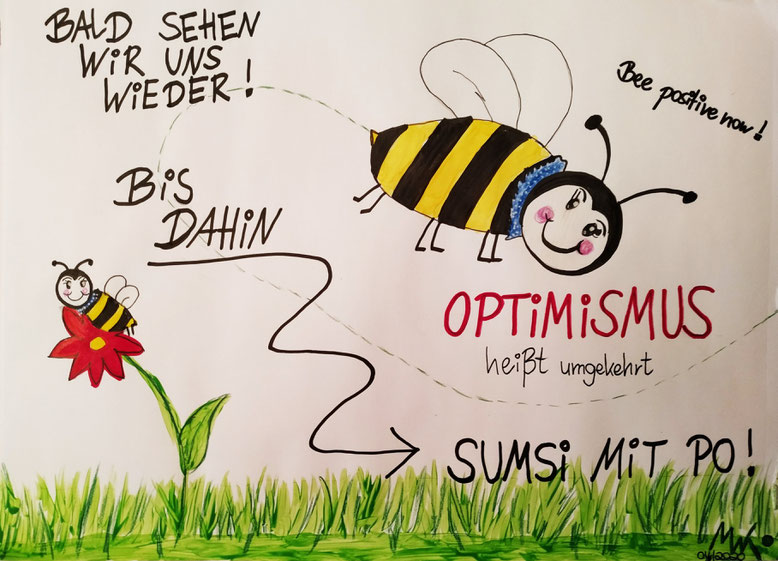 BALD SEHEN
WiR UNS
WiEDER!
Bee positive now!
BiS
DAHiN
OPTiMiSMUS
heißt umgekehrt
SUMSi MiT PO!
04/2020